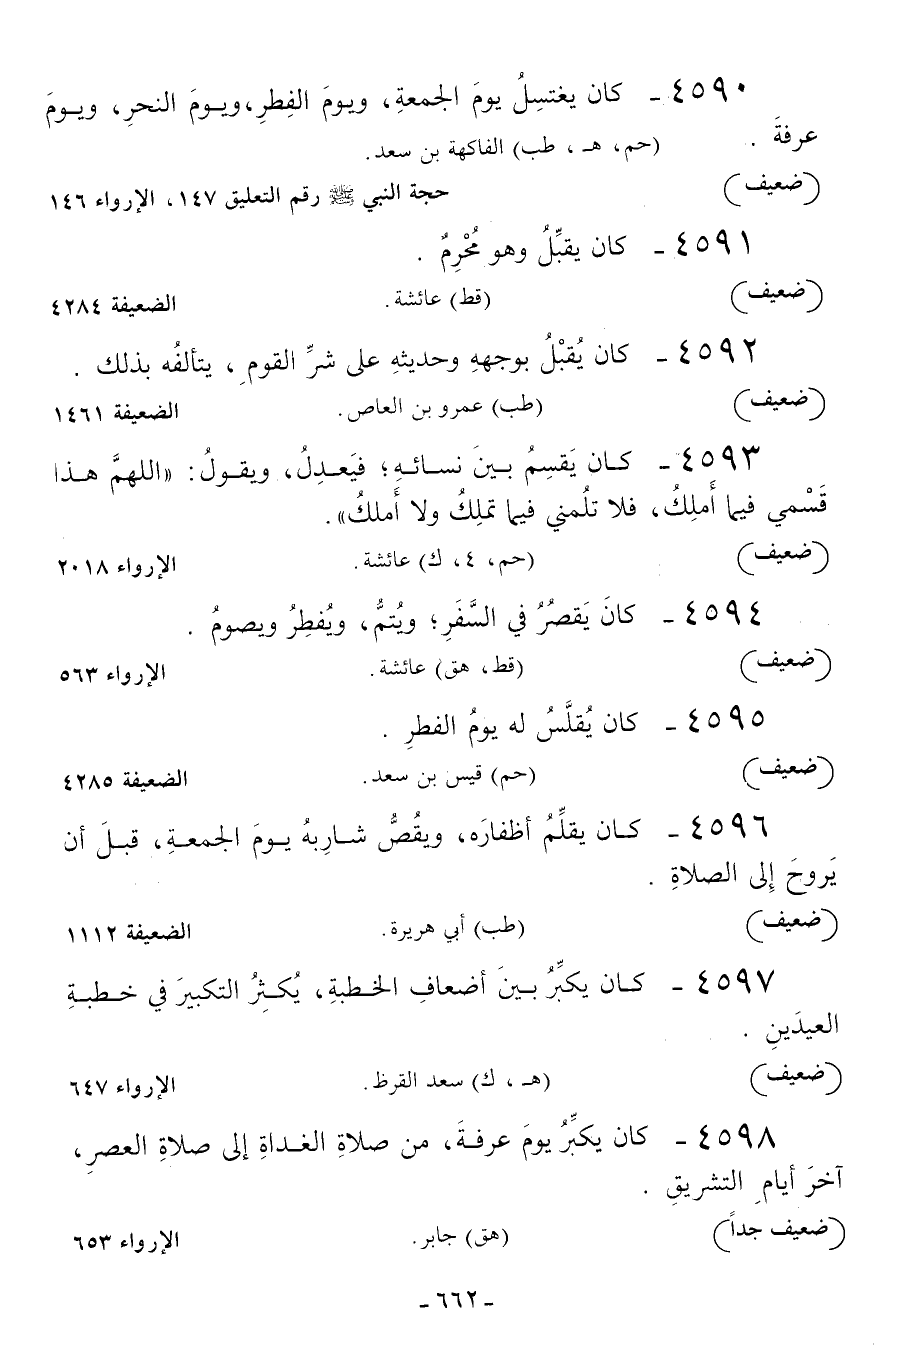 ٤٥٩٠ - كان يغتسِلُ يومَ الجمعةِ، ويومَ الفِطرِ، ويومَ النحرِ، ويومَ
عرفةَ .
(حم، هـ ، طب) الفاكهة بن سعد.
(ضعيف) حجة النبي ﷺ رقم التعليق ١٤٧، الإرواء ١٤٦
٤٥٩١ - كان يقبِّلُ وهو مُحْرِمٌ .
(ضعيف) (قط) عائشة. الضعيفة ٤٢٨٤
٤٥٩٢ - كان يُقبْلُ بوجههِ وحديثهِ على شرِّ القومِ ، يتألفُه بذلك .
(ضعيف) (طب) عمرو بن العاص. الضعيفة ١٤٦١
٤٥٩٣ - كان يَقسِمُ بينَ نسائهِ؛ فيَعدِلُ، ويقولُ: «اللهمَّ هذا
قَسْمي فيما أَملِكُ، فلا تلُمني فيما تملِكُ ولا أَملكُ».
(ضعيف) (حم، ٤، ك) عائشة. الإرواء ٢٠١٨
٤٥٩٤ - كانَ يَقصُرُ في السَّفَرِ؛ ويُتمُّ، ويُفطِرُ ويصومُ .
(ضعيف) (قط، هق) عائشة. الإرواء ٥٦٣
٤٥٩٥ - كان يُقلَّسُ له يومُ الفطرِ .
(ضعيف) (حم) قيس بن سعد. الضعيفة ٤٢٨٥
٤٥٩٦ - كان يقلِّمُ أظفارَه، ويقُصُّ شاربهُ يومَ الجمعةِ، قبلَ أن
يَروحَ إلى الصلاةِ .
(ضعيف) (طب) أبي هريرة. الضعيفة ١١١٢
٤٥٩٧ - كان يكبِّرُ بينَ أضعافِ الخطبةِ، يُكثِرُ التكبيرَ في خطبةِ
العيدَينِ .
(ضعيف) (هـ ، ك) سعد القرظ. الإرواء ٦٤٧
٤٥٩٨ - كان يكبِّرُ يومَ عرفةَ، من صلاةِ الغداةِ إلى صلاةِ العصرِ،
آخرَ أيامِ التشريقِ .
(ضعيف جداً) (هق) جابر. الإرواء ٦٥٣
- ٦٦٢ -